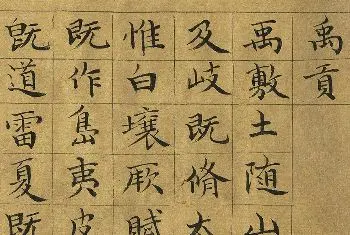 禹貢
禹敷土随山
及岐既脩太
惟白壤厥賦
既作島夷皮
既道雷夏既